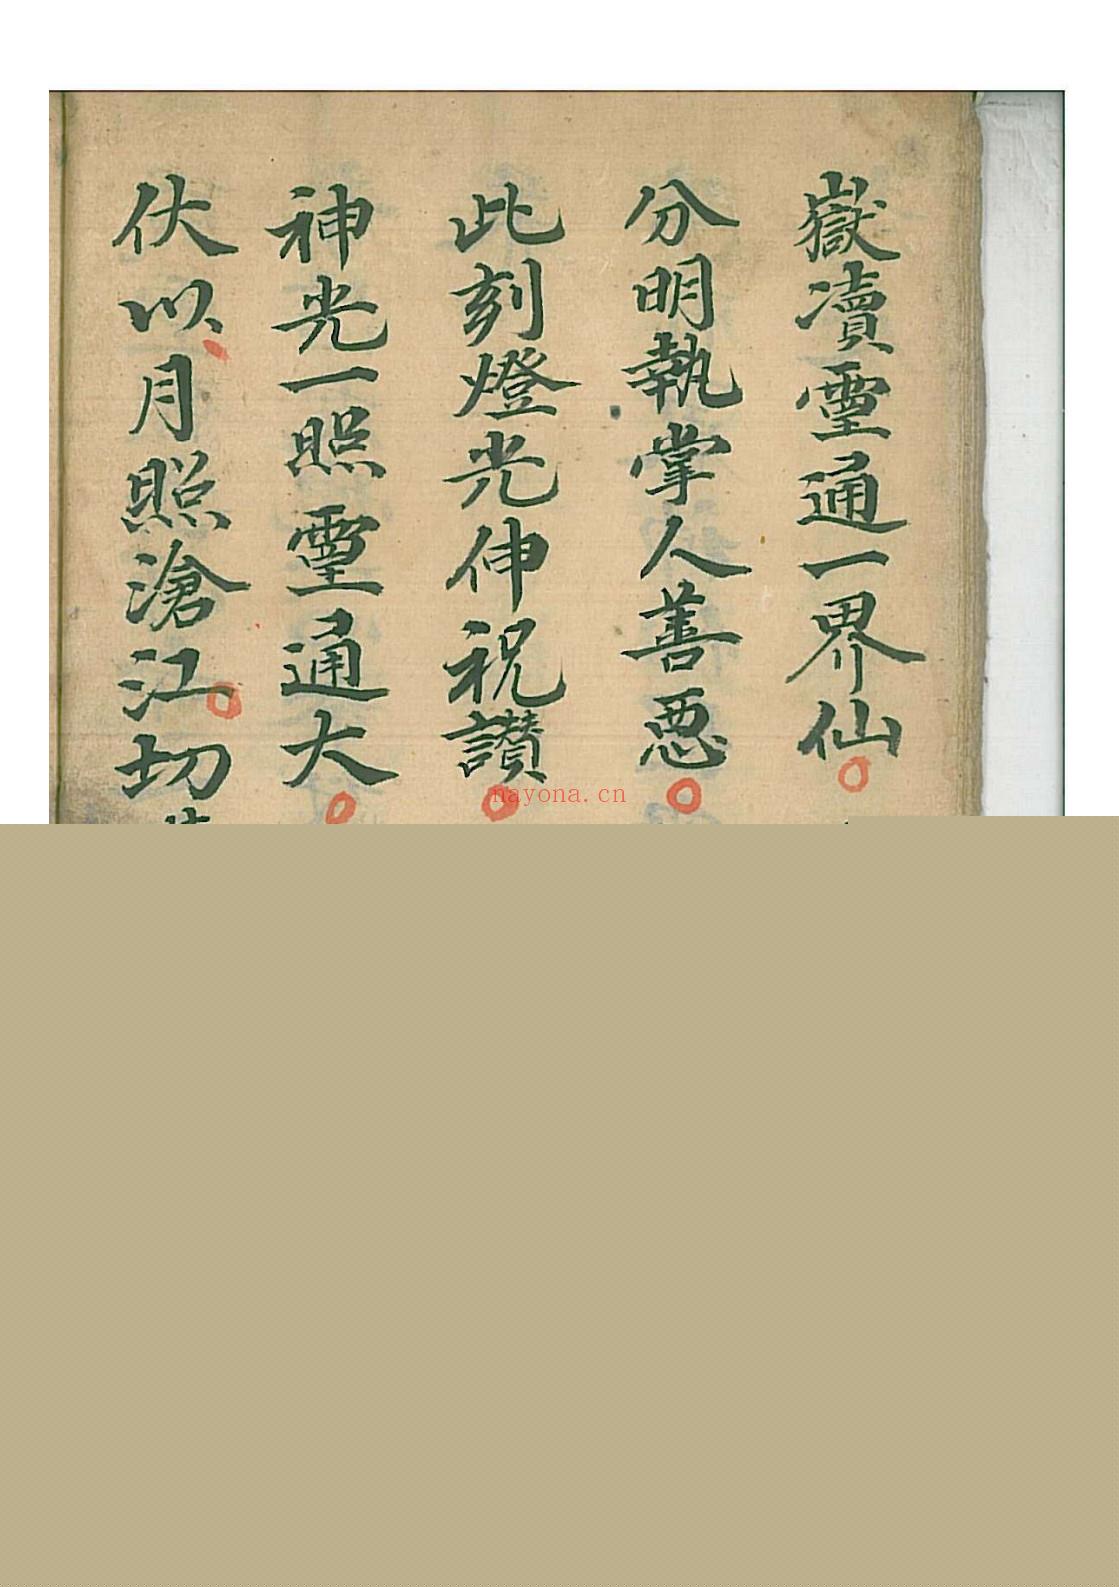 嶽凟霊通一界仙
分明執掌人善悪
此刻燈光伸祝讃
神光一照霊通大
伏以月照滄江切
nayona.cn